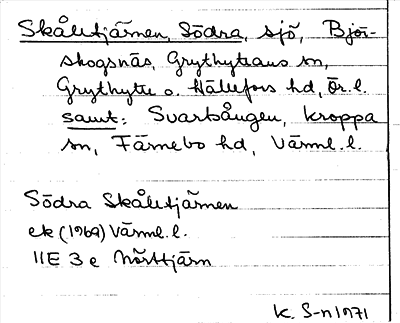 Skåltjärnen, Södra, sjö, Björ-
skogsnäs, Grythyttans sn,
Grythytte o. Hällefors hd, Ör. l.
samt: Svartsången, Kroppa
sn, Färnebo hd, Värml. l.
Södra Skåltjärnen
ek (1969) Värml. l.
11E 3 e Nörttjärn
K. S-n 1971